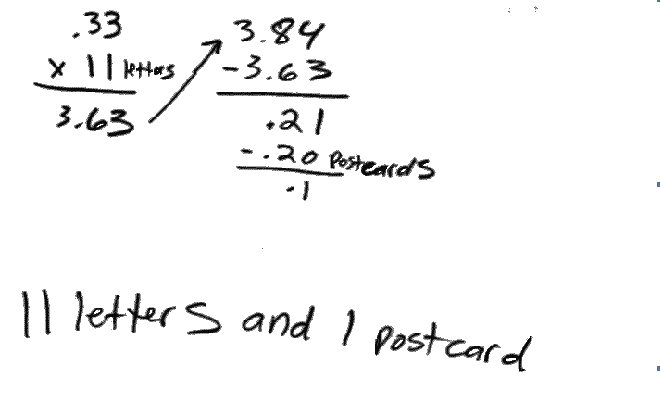 .33
x 11 letters
3.63
3.84
-3.63
.21
-.20 Postcards
.1
11 letters and 1 postcard